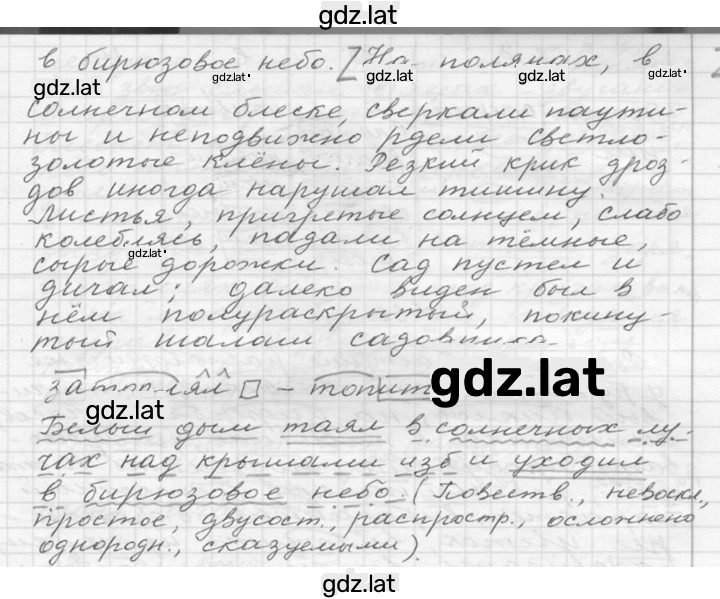 gdz.lat
в бирюзовое небо. На полянах, в
gdz.lat gdz.lat gdz.lat gdz.lat gdz.lat
солнечном блеске, сверкали паути-
ны и неподвижно рдели светло-
золотые клёны. Резкий крик дроз-
дов иногда нарушал тишину.
Листья, пригретые солнцем, слабо
колеблясь, падали на тёмные,
gdz.lat
сырые дорожки. Сад пустел и
дичал; далеко виден был в
нём полураскрытый, покину-
тый шалаш садовника.
gdz.lat
топит
gdz.lat
Белый дым таял в солнечных лу-
чах над крышами изб и уходил
в бирюзовое небо. (Повеств., невоскл.,
простое, двусост., распростр., осложнено
однородн., сказуемыми).
gdz.lat